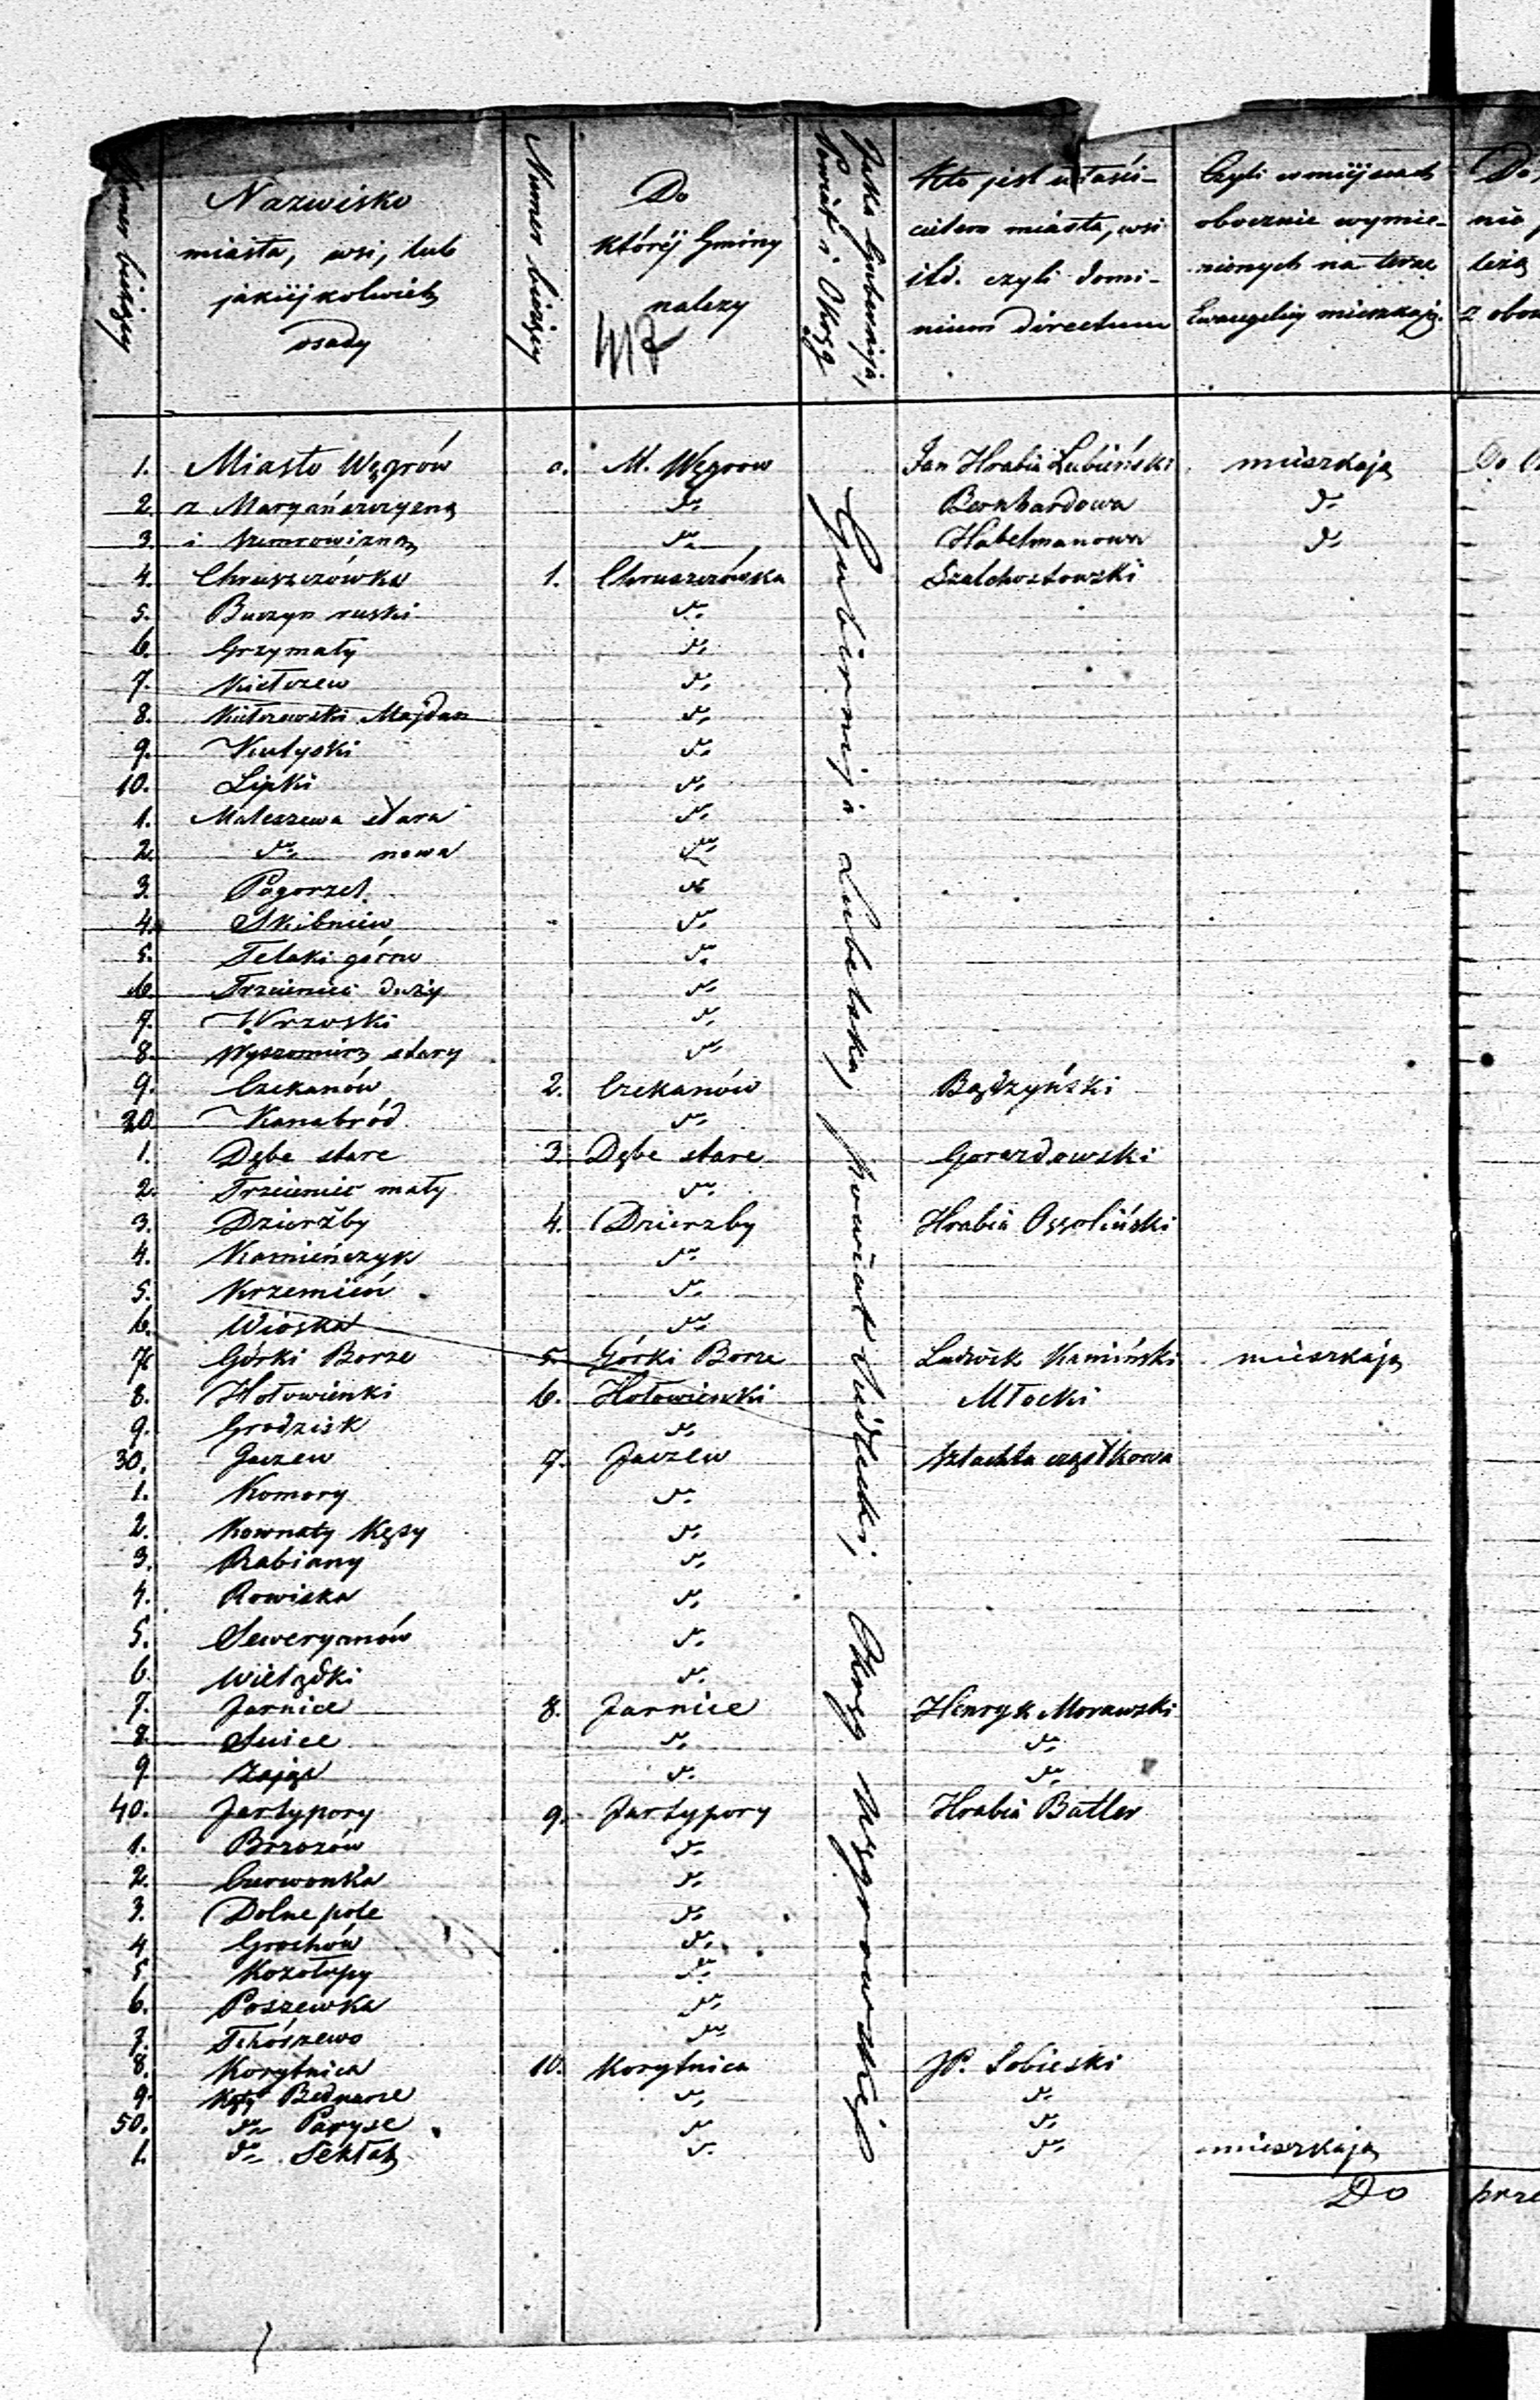 Numer bieżący
Nazwisko
miasta, wsi, lub
jakiijkolwiek
osady
Numer bieżący
Do
któréj Gminy
należy
417
Jaka Gubernija,
Powiat i Okręg
Kto jest właści-
cielem miasta, wsi
itd. czyli domi-
nium directum
Czyli w miijscach
obocznie wymie-
nionych na teraz
Ewangelicy mieszkają.
Gubiernija Lubelska, powiat Siedlecki, Okręg Węgrowskij
1. Miasto Węgrów 0. M. Węgrow Jan Hrabia Łubieński mieszkają
2. z Maryańszczyzną do Bernhardowa do
3. i Szumrowizną do Habelmanowa do
4. Chruszczówka 1. Chruszczówka Szelchostowski
5. Buczyn ruski do
6. Grzymały do
7. Kiełczew do
8. Kiełczewski Majdan do
9. Kutyski do
10. Lipki do
1. Maleszewa stara do
2. do nowa do
3. Pogorzel do
4. Skibniew do
5. Telaki górne do
6. Trzciniec duży do
7. Wrzoski do
8. Wyszomierz stary do
9. Czekanów 2. Czekanów Bądzyński
20 Kanabród do
1. Dębe stare 3. Dębe stare Gorazdowski
2. Trzciniec mały do
3. Dzierżby 4. Dzierzby Hrabia Ossoliński
4. Kamieńczyk do
5. Krzemień do
6. Wioska do
7. Górki Borze 5. Górki Borze Ludwik Kamiński mieszkają
8. Hołowienki 6. Hołowienki Młocki
9. Grodzisk do
30. Jaczew 7. Jaczew Szlachta cząstkowa
1. Komory do
2. Kownaty Kęsy do
3. Rabiany do
4. Rowiska do
5. Sewerynów do
6. Wielądki do
7. Jarnice 8. Jarnice Henryk Morawski
8. Suice do do
9 Zając do do
40. Jartypory 9. Jartypory Hrabia Butler
1. Brzozów do
2. Czerwonka do
3. Dolne pole do
4 Grochów do
5 Kozołupy do
6. Poszewka do
7. Tchórzewo do
8. Korytnica 10. Korytnica JP. Sobieski
9. Kąty Bednarze do do
50. do Paryse do do
1. do Sekłak do do mieszkają
Do prze